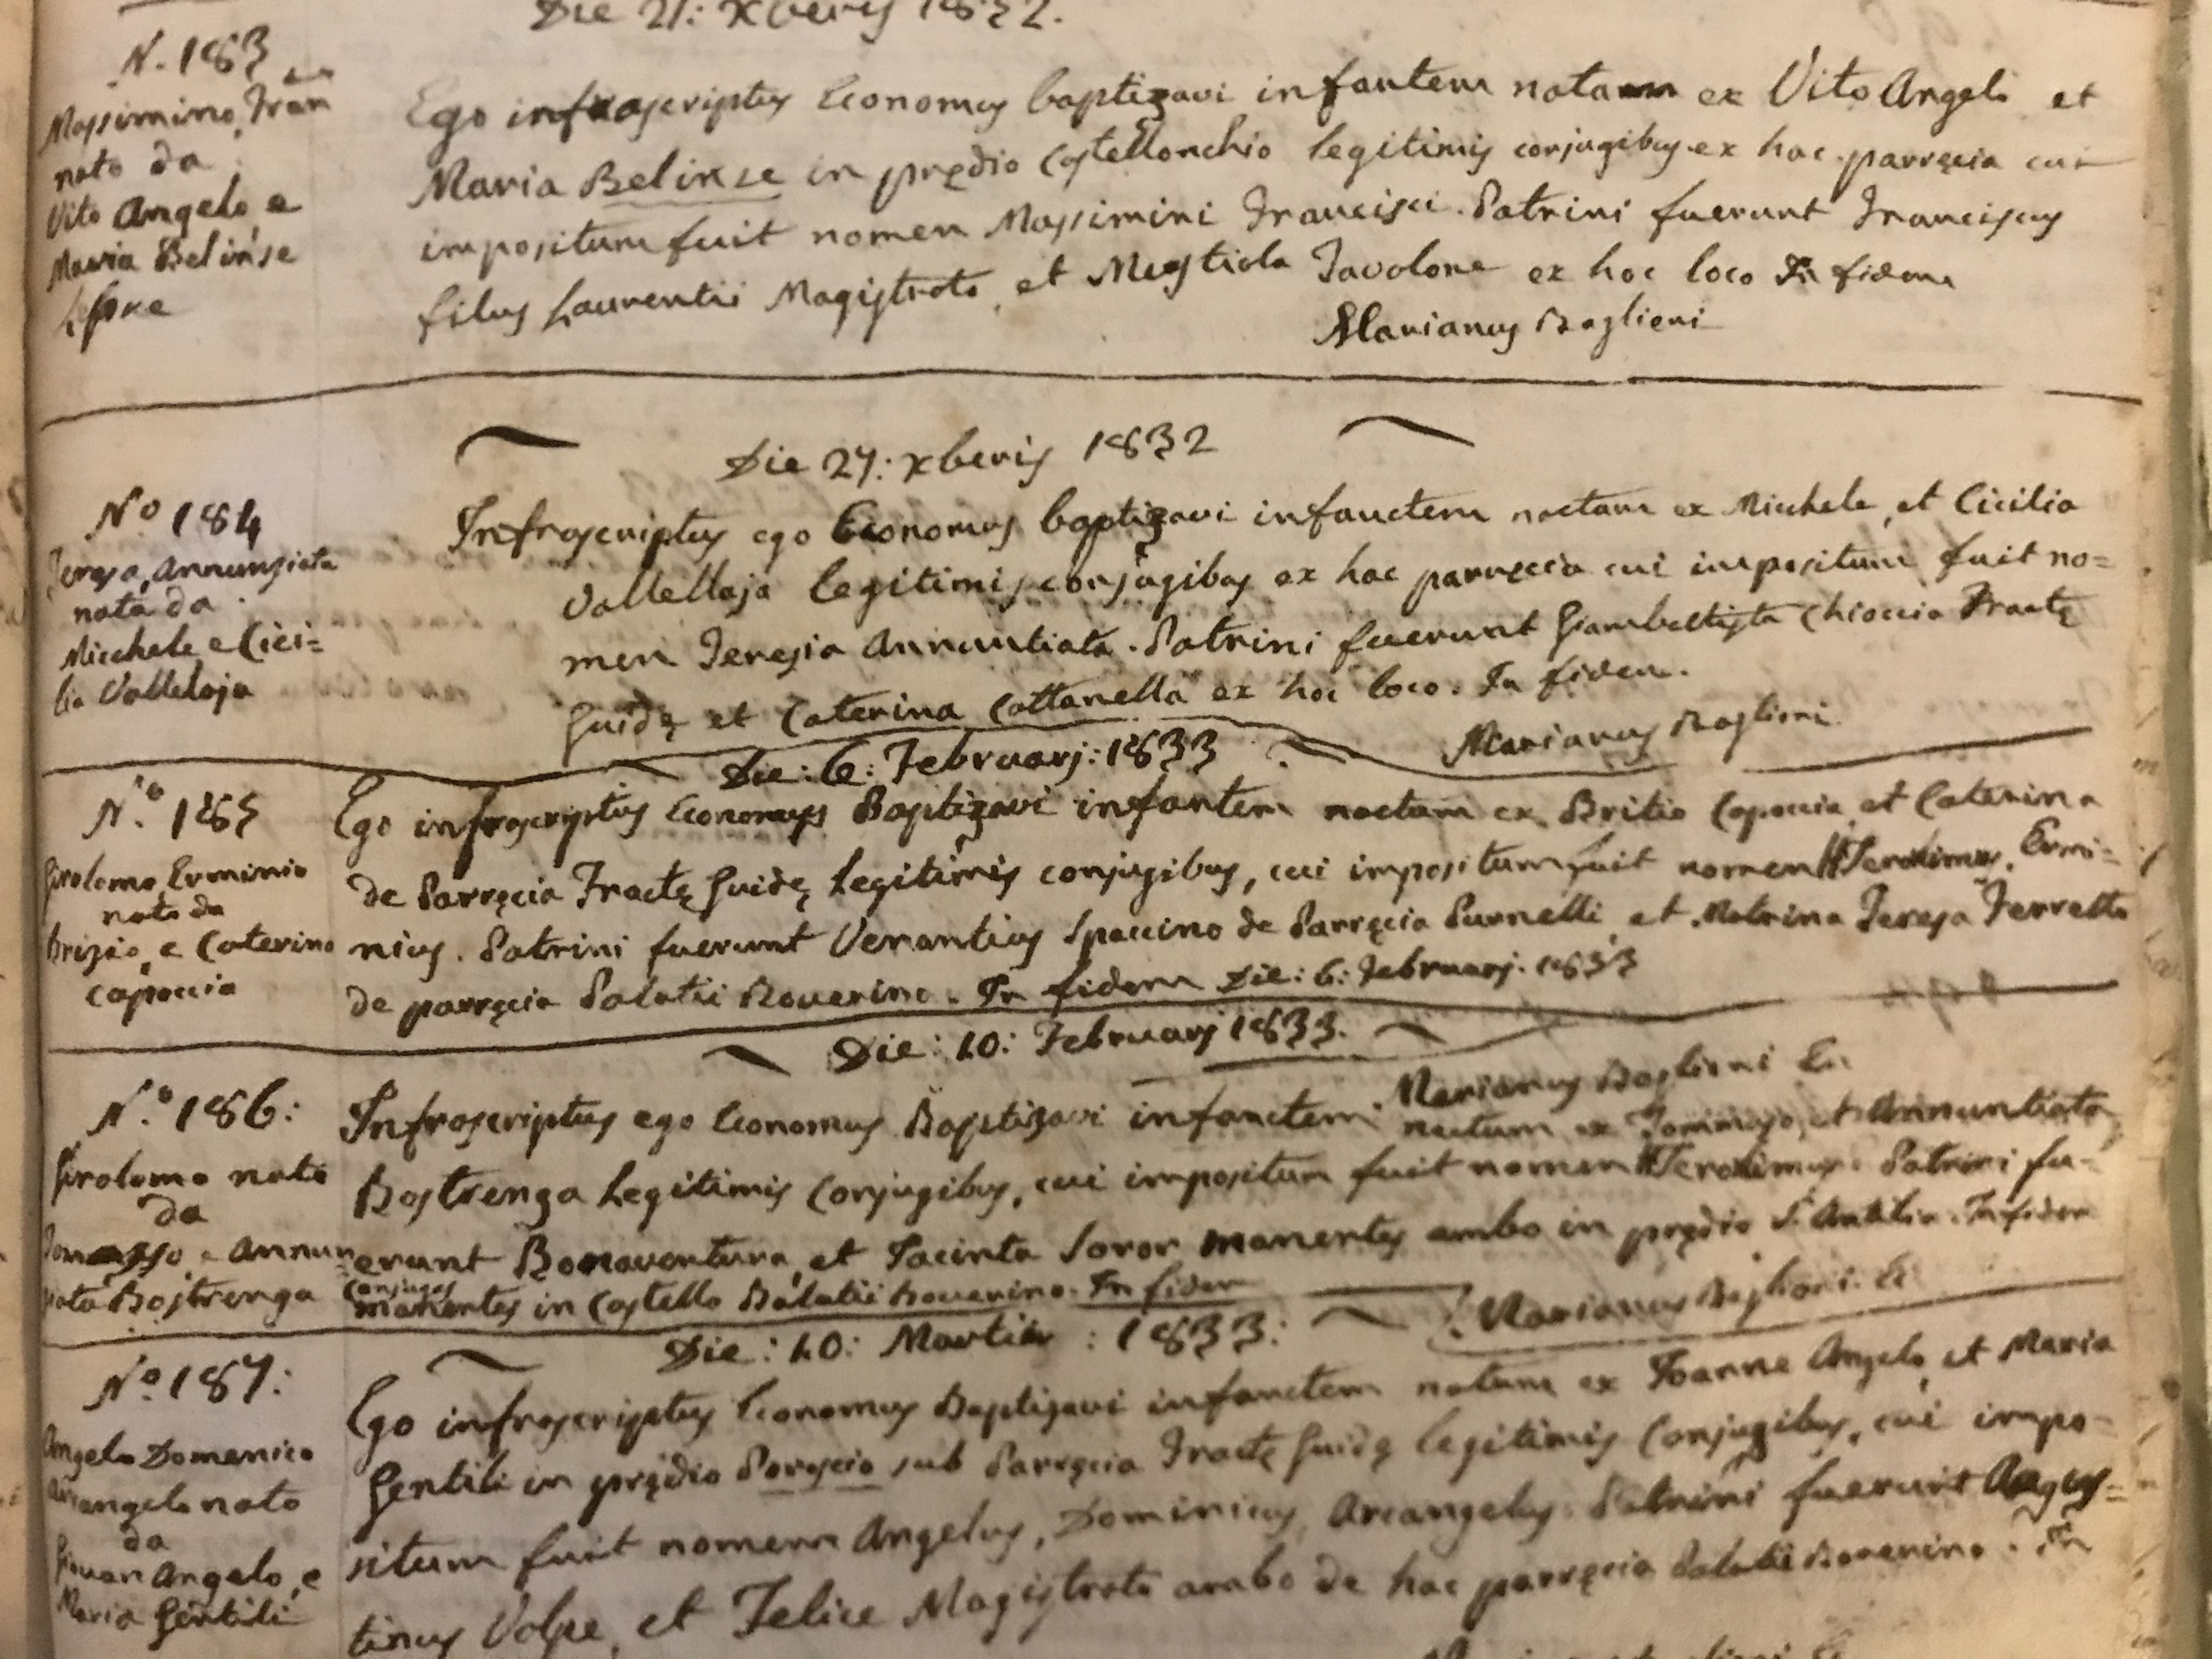 Die 21: Xberis 1832.
N. 183
Massimino, Fran
nato da
Vito Angelo, e
Maria Belinse
Ego infrascriptus Economus baptizavi infantem natam ex Vito Angelo et
Maria Belinze in prędio Castellonchio legitimis conjugibus ex hac parręcia cui
impositum fuit nomen Massimini Francisci. Patrini fuerunt Franciscus
filius Laurentii Magistrato, et Mestiola Favolone ex hoc loco In fidem
Marianus Baglioni
Die 27: xberis 1832
No 184
Teresa, Annunziata
nata da
Micchele e Cici=
lia Vallelaja
Infrascriptus ego Economus baptizavi infanctem nactam ex Micchele, et Cicilia
Vallellaja legitimis conjugibus ex hac parręcia cui impositum fuit no=
men Teresia Annuntiata. Patrini fuerunt Giambattista Chioccia Fractę
Guidę et Caterina Cattanella ex hoc loco. In fidem.
Marianus Baglioni
Die: 6: Februarj: 1833
N.o 185
Girolamo Erminio
nato da
Brizio, e Caterina
Capoccia
Ego infrascriptus Economus Baptizavi infantem nactam ex Britio Capoccia, et Caterina
de Parręcia Fractę Guidę Legitimis conjugibus, cui impositum fuit nomen Jeronimus, Ermi=
nius. Patrini fuerunt Venantius Spaccino de Parręcia Purnelli, et Matrina Teresa Ferretta
de parręcia Palatii Roverino. In fidem Die: 6: Februarj. 1833
Marianus Baglioni Ec.
Die: 10: Februarj 1833.
N.o 186:
Girolamo nato
da
Tomasso, e Annun
ziata Bostrenga
Infrascriptus ego Economus Baptizavi infanctem nactum ex Tommaso, et Annuntiata
Bostrenga Legitimis Conjugibus, cui impositum fuit nomen Jeronimus. Patrini fu=
erunt Bonaventura, et Jacinta Soror manentes ambo in prędio S. Antilia. In fidem
Conjuges
manentes in Castello Palatii Roverino. In fidem
Marianus Baglioni. Ec
Die: 10: Martii : 1833:
No. 187:
Angelo Domenico
Arcangelo nato
da
Giovan Angelo, e
Maria Gentili
Ego infrascriptus Economus Baptizavi infanctem natum ex Joanne Angelo, et Maria
Gentili in prędio Porascio sub Parręcia Fractę Guidę legitimis Conjugibus, cui impo=
situm fuit nomen Angelus, Dominicus, Arcangelus. Patrini fuerunt Augus=
tinus Volpe, et Felice Magistrato ambo de hac parręcia Palatii Roverino. In